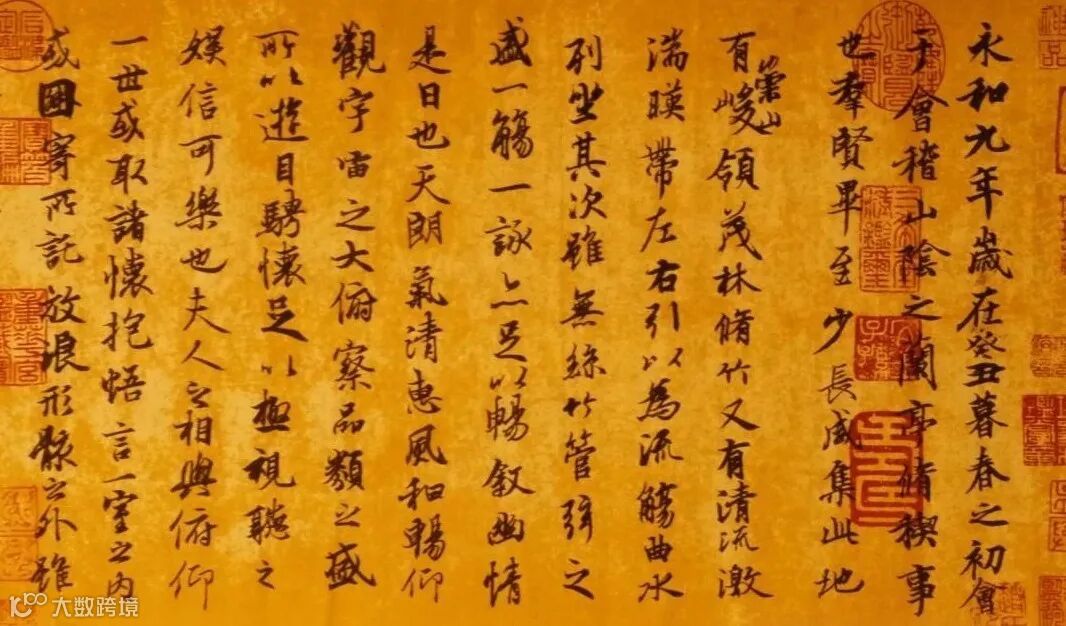 永和九年歲在癸丑暮春之初會
于會稽山陰之蘭亭脩稧事
也羣賢畢至少長咸集此地
有崇山峻領茂林脩竹又有清流激
湍暎帶左右引以為流觴曲水
列坐其次雖無絲竹管弦之
盛一觴一詠亦足以暢敘幽情
是日也天朗氣清惠風和暢仰
觀宇宙之大俯察品類之盛
所以遊目騁懷足以極視聽之
娛信可樂也夫人之相與俯仰
一世或取諸懷抱悟言一室之內
或因寄所託放浪形骸之外雖
大数跨境